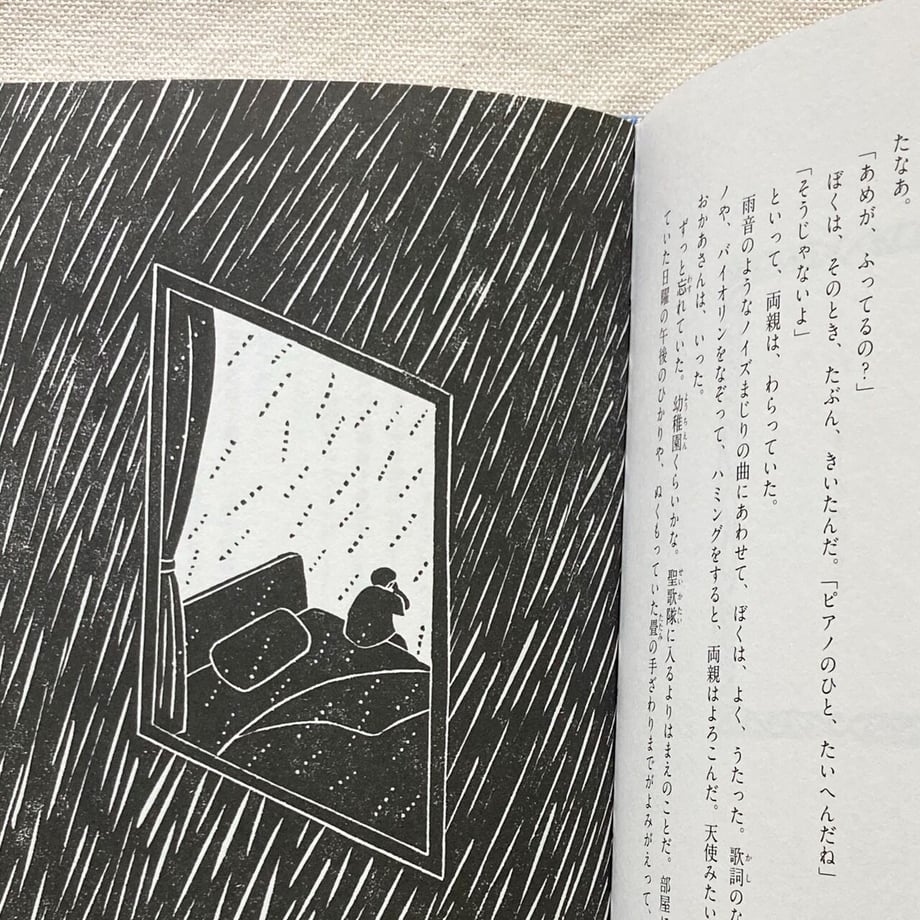 たなあ。
「あめが、ふってるの?」
ぼくは、そのとき、たぶん、きいたんだ。「ピアノのひと、たいへんだね」
「そうじゃないよ」
といって、両親は、わらっていた。
雨音のようなノイズまじりの曲にあわせて、ぼくは、よく、うたった。歌詞のな
ノや、バイオリンをなぞって、ハミングをすると、両親はよろこんだ。天使みたい
おかあさんは、いった。
ずっと忘れていた。幼稚園くらいかな。聖歌隊に入るよりはまえのことだ。部屋に
ていた日曜の午後のひかりや、ぬくもっていた畳の手ざわりまでがよみがえって、